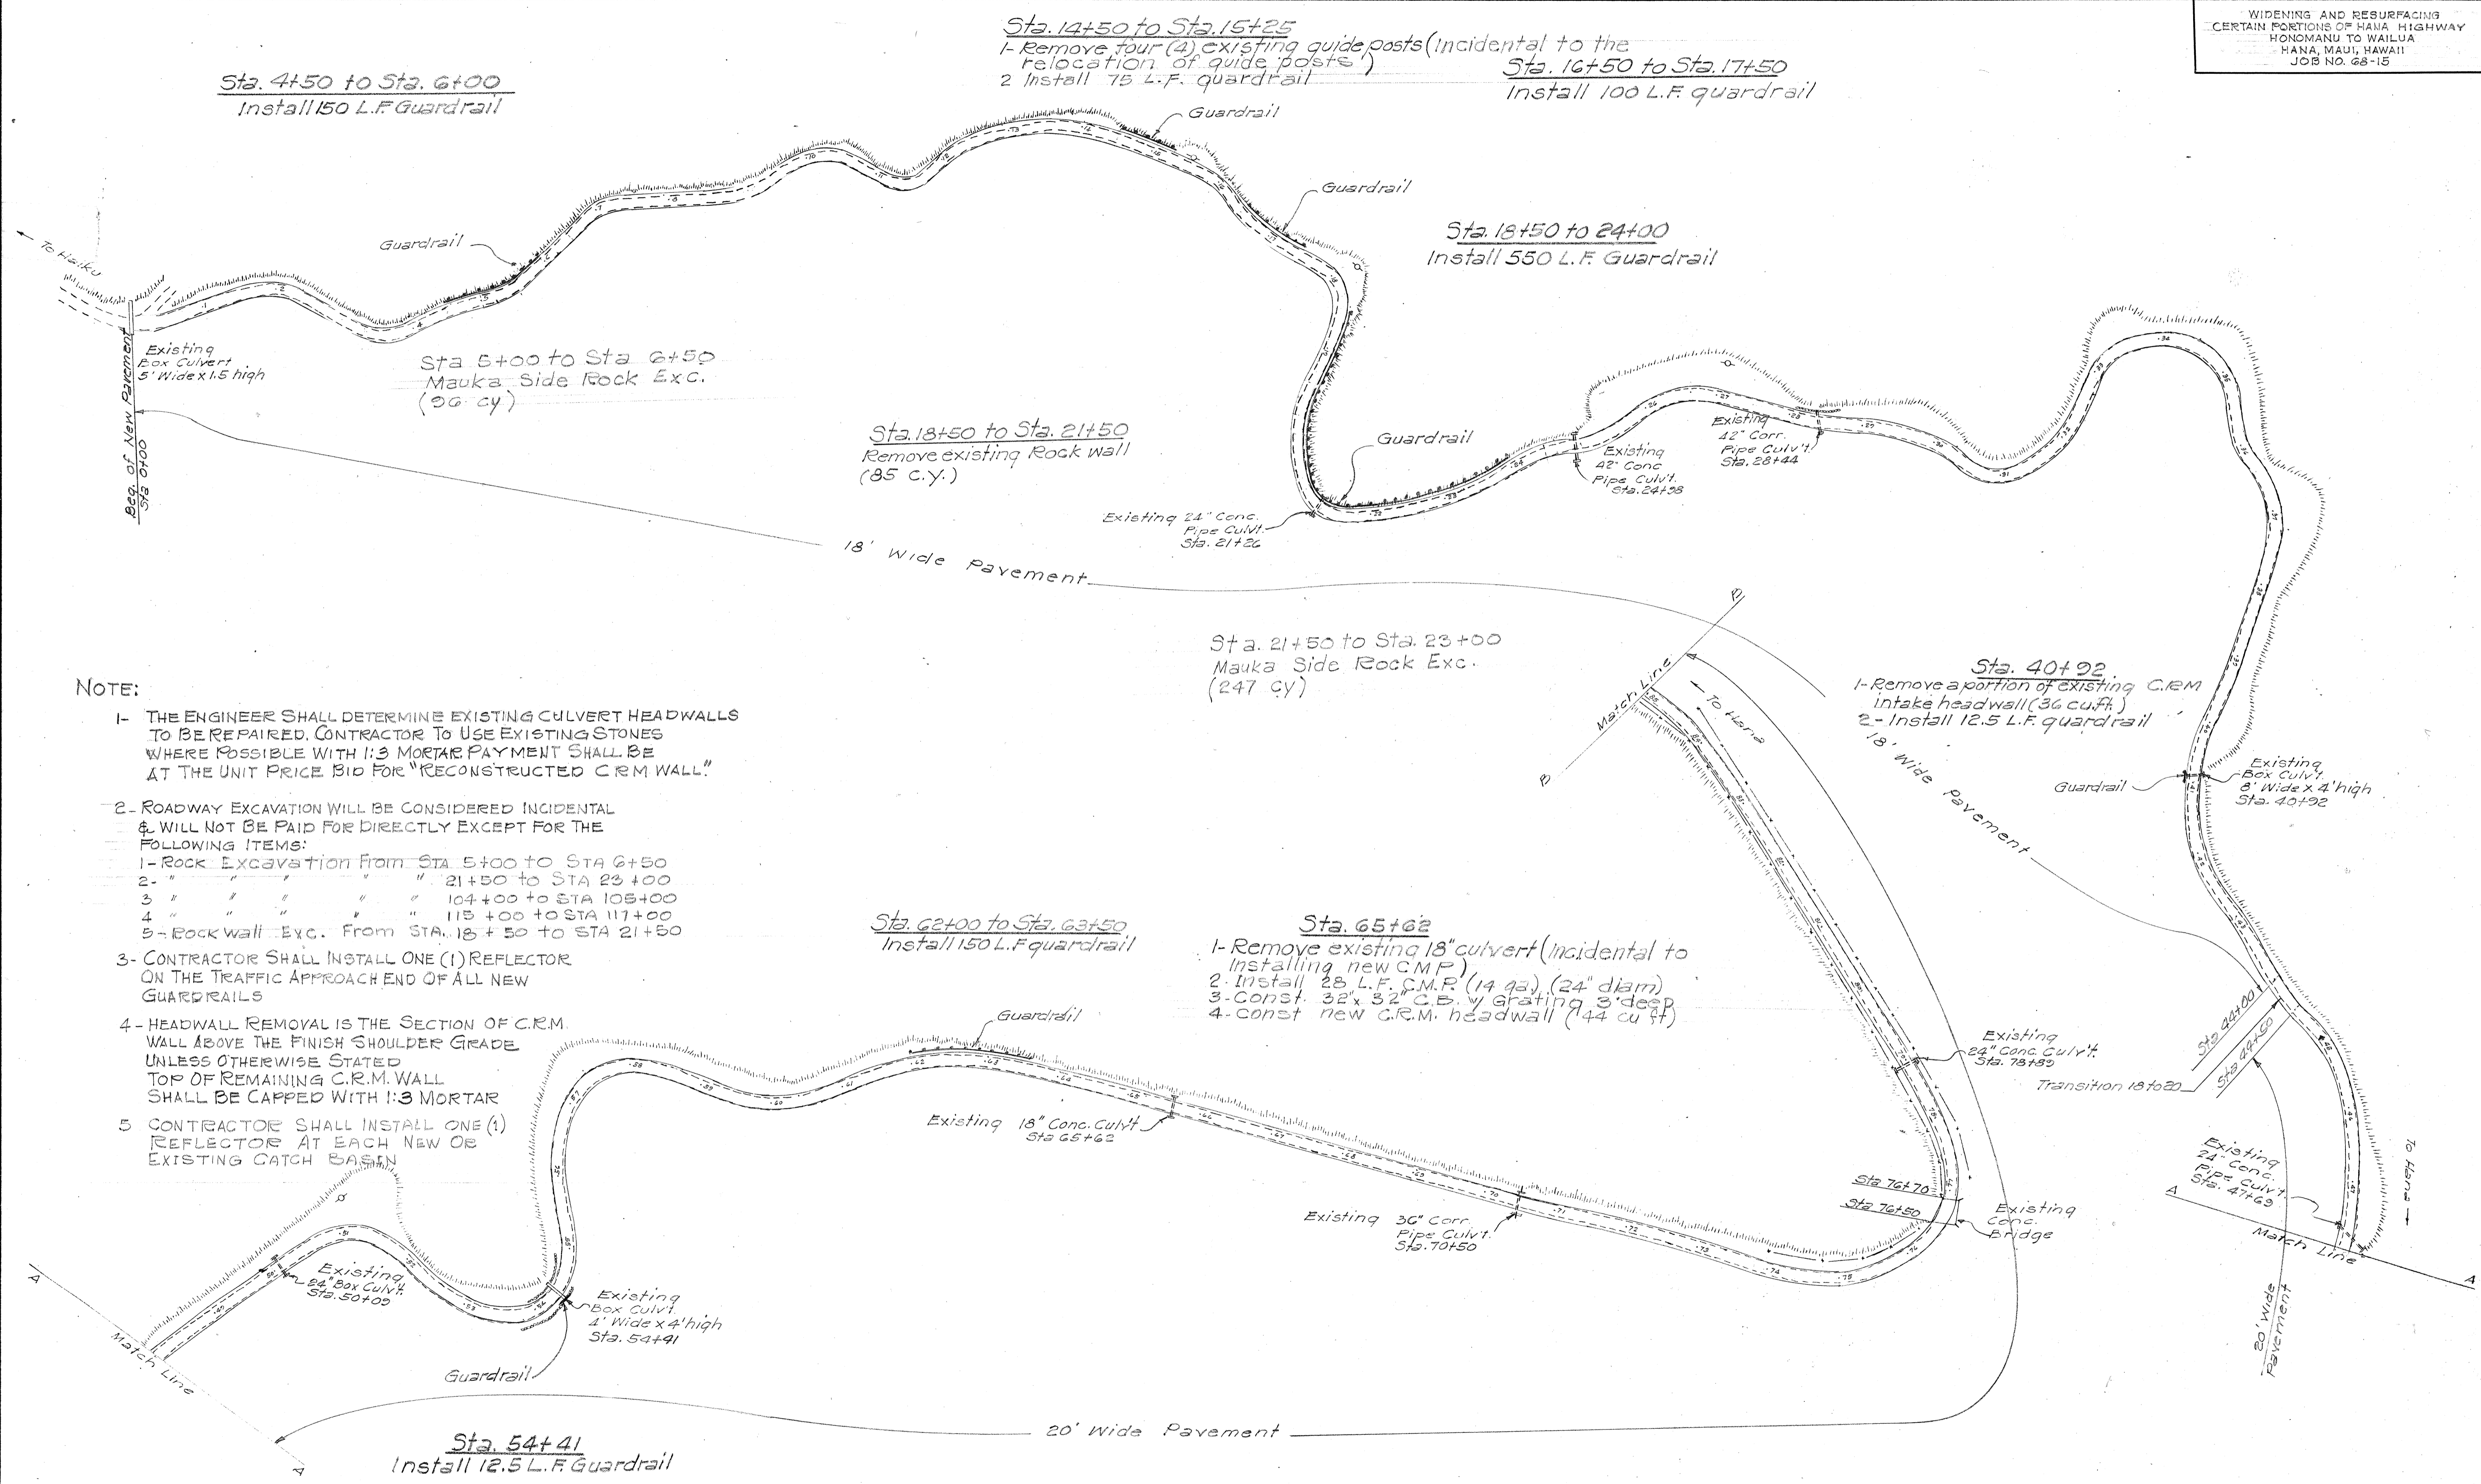 WIDENING AND RESURFACING
CERTAIN PORTIONS OF HANA HIGHWAY
HONOMANU TO WAILUA
HANA, MAUI, HAWAII
JOB NO. 68-15
Sta. 14+50 to Sta. 15+25
1- Remove four (4) existing guide posts (Incidental to the
relocation of guide posts)
2 Install 75 L.F. guardrail
Sta. 16+50 to Sta. 17+50
Install 100 L.F. guardrail
Sta. 4+50 to Sta. 6+00
Install 150 L.F. Guardrail
Guardrail
Guardrail
Guardrail
To Haiku
Sta. 18+50 to 24+00
Install 550 L.F. Guardrail
Beg. of New Pavement
Sta 0+00
Existing
Box Culvert
5' Wide x 1.5 high
Sta 5+00 to Sta 6+50
Mauka Side Rock Exc.
(96 cy)
Sta. 18+50 to Sta. 21+50
Remove existing Rock wall
(85 c.y.)
Guardrail
Existing 24" Conc.
Pipe Culvt.
Sta. 21+26
Existing
42" Conc
Pipe Culv't.
Sta. 24+98
Existing
42" Corr.
Pipe Culv't.
Sta. 28+44
18' Wide Pavement
Sta. 21+50 to Sta. 23+00
Mauka Side Rock Exc.
(247 cy)
B
Match Line
B
To Hana
Sta. 40+92
1-Remove a portion of existing C.R.M
intake headwall (36 cu.ft.)
2- Install 12.5 L.F. guardrail
18' Wide Pavement
Guardrail
Existing
Box Culv't.
8' Wide x 4' high
Sta. 40+92
NOTE:
1- THE ENGINEER SHALL DETERMINE EXISTING CULVERT HEADWALLS
TO BE REPAIRED. CONTRACTOR TO USE EXISTING STONES
WHERE POSSIBLE WITH 1:3 MORTAR PAYMENT SHALL BE
AT THE UNIT PRICE BID FOR "RECONSTRUCTED CRM WALL."
2- ROADWAY EXCAVATION WILL BE CONSIDERED INCIDENTAL
& WILL NOT BE PAID FOR DIRECTLY EXCEPT FOR THE
FOLLOWING ITEMS:
1- Rock Excavation From STA 5+00 to STA 6+50
2- " " " " " 21+50 to STA 23+00
3 " " " " " 104+00 to STA 105+00
4 " " " " " 115+00 to STA 117+00
5- Rock wall Exc. From STA. 18+50 to STA 21+50
3- CONTRACTOR SHALL INSTALL ONE (1) REFLECTOR
ON THE TRAFFIC APPROACH END OF ALL NEW
GUARDRAILS
4- HEADWALL REMOVAL IS THE SECTION OF C.R.M.
WALL ABOVE THE FINISH SHOULDER GRADE
UNLESS OTHERWISE STATED
TOP OF REMAINING C.R.M. WALL
SHALL BE CAPPED WITH 1:3 MORTAR
5 CONTRACTOR SHALL INSTALL ONE (1)
REFLECTOR AT EACH NEW OR
EXISTING CATCH BASIN
Sta. 62+00 to Sta. 63+50
Install 150 L.F guardrail
Sta. 65+62
1- Remove existing 18" culvert (Incidental to
Installing new CMP)
2- Install 28 L.F. C.M.P. (14 ga.) (24" diam)
3- Const. 32" x 32" C.B. w/ Grating 3' deep
4- const new C.R.M. headwall (44 cu ft)
Guardrail
Existing 18" Conc. Culv't
Sta 65+62
Existing 36" Corr.
Pipe Culv't.
Sta. 70+50
Existing
24" Conc. Culv't.
Sta. 78+89
Sta 44+00
Sta 44+50
Transition 18 to 20
Sta 76+70
Sta 76+50
Existing
Conc.
Bridge
Existing
24" Conc.
Pipe Culv't.
Sta. 47+69
To Hana
A
Match Line
A
20' Wide
Pavement
Existing
24" Box Culv't.
Sta. 50+09
Existing
Box Culv't.
4' Wide x 4' high
Sta. 54+41
Guardrail
A
Match Line
A
20' Wide Pavement
Sta. 54+41
Install 12.5 L.F. Guardrail